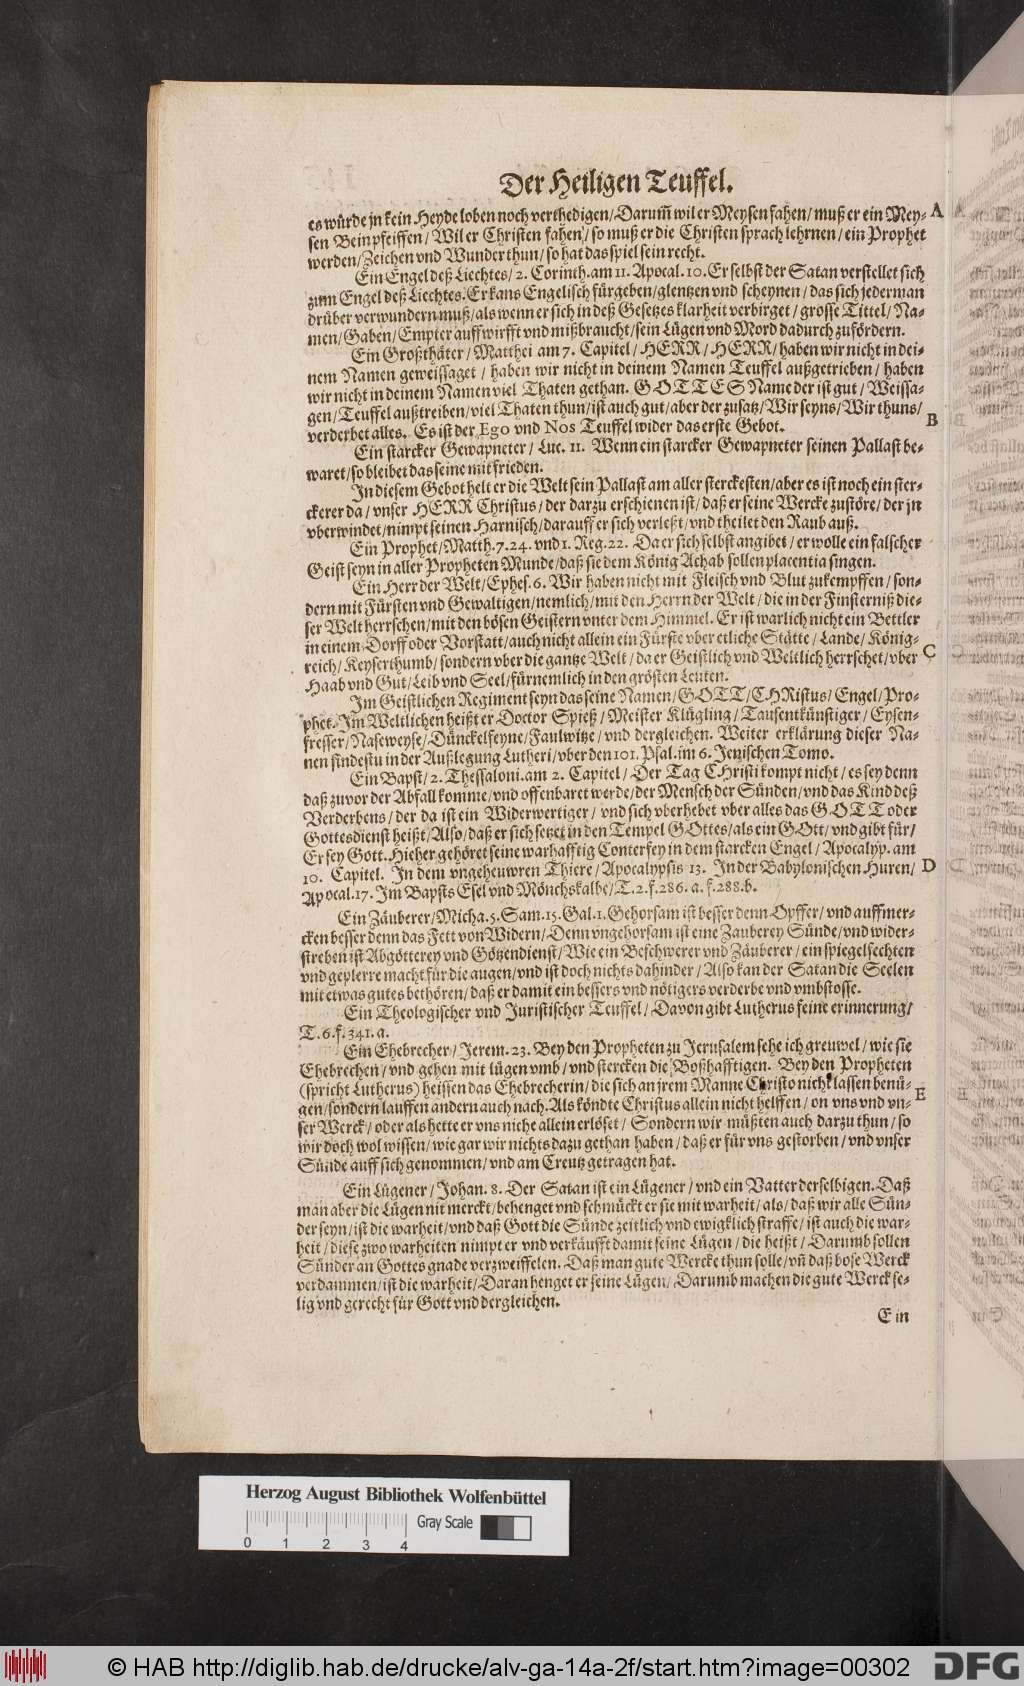 Der Heiligen Teuffel.
es würde jn kein Heyde loben noch verthedigen/Darum̃ wil er Meysen fahen/muß er ein Mey- A
sen Bein pfeiffen/Wil er Christen fahen/so muß er die Christen sprach lehrnen/ein Prophet
werden/Zeichen vnd Wunder thun/so hat das spiel sein recht.
Ein Engel deß Liechtes/2. Corinth. am 11. Apocal. 10. Er selbst der Satan verstellet sich
zum Engel deß Liechtes. Er kans Engelisch fürgeben/glentzen vnd scheynen/das sich jederman
drüber verwundern muß/als wenn er sich in deß Gesetzes klarheit verbirget/grosse Tittel/Na-
men/Gaben/Empter auffwirfft vnd mißbraucht/sein Lügen vnd Mord dadurch zufördern.
Ein Großthäter/Matthei am 7. Capitel/HERR/HERR/haben wir nicht in dei-
nem Namen geweissaget/haben wir nicht in deinem Namen Teuffel außgetrieben/haben
wir nicht in deinem Namen viel Thaten gethan. GOTTES Name der ist gut/Weissa-
gen/Teuffel außtreiben/viel Thaten thun/ist auch gut/aber der zusatz/Wir seyns/Wir thuns/ B
verderbet alles. Es ist der Ego vnd Nos Teuffel wider das erste Gebot.
Ein starcker Gewapneter/Luc. 11. Wenn ein starcker Gewapneter seinen Pallast be-
waret/so bleibet das seine mit frieden.
In diesem Gebot helt er die Welt sein Pallast am aller sterckesten/aber es ist noch ein ster-
ckerer da/vnser HERR Christus/der darzu erschienen ist/daß er seine Wercke zustöre/der jn
vberwindet/nimpt seinen Harnisch/darauff er sich verleßt/vnd theilet den Raub auß.
Ein Prophet/Matth. 7. 24. vnd 1. Reg. 22. Da er sich selbst angibet/er wolle ein falscher
Geist seyn in aller Propheten Munde/daß sie dem König Achab sollen placentia singen.
Ein Herr der Welt/Ephes. 6. Wir haben nicht mit Fleisch vnd Blut zukempffen/son-
dern mit Fürsten vnd Gewaltigen/nemlich/mit den Herrn der Welt/die in der Finsterniß die-
ser Welt herrschen/mit den bösen Geistern vnter dem Himmel. Er ist warlich nicht ein Bettler
in einem Dorff oder Vorstatt/auch nicht allein ein Fürste vber etliche Stätte/Lande/König-
reich/Keyserthumb/sondern vber die gantze Welt/da er Geistlich vnd Weltlich herrschet/vber C
Haab vnd Gut/Leib vnd Seel/fürnemlich in den grösten Leuten.
Im Geistlichen Regiment seyn das seine Namen/GOTT/CHRistus/Engel/Pro-
phet. Im Weltlichen heißt er Doctor Spieß/Meister Klügling/Tausentkünstiger/Eysen-
fresser/Naseweyse/Dünckelseyne/Faulwitze/vnd dergleichen. Weiter erklärung dieser Na-
nen findestu in der Außlegung Lutheri/vber den 101. Psal. im 6. Jenischen Tomo.
Ein Bapst/2. Thessaloni. am 2. Capitel/Der Tag CHristi kompt nicht/es sey denn
daß zuvor der Abfall komme/vnd offenbaret werde/der Mensch der Sünden/vnd das Kind deß
Verderbens/der da ist ein Widerwertiger/vnd sich vberhebet vber alles das GOTT oder
Gottesdienst heißt/Also/daß er sich setzet in den Tempel GOttes/als ein GOtt/vnd gibt für/
Er sey Gott. Hieher gehöret seine warhafftig Conterfey in dem starcken Engel/Apocalyp. am
10. Capitel. In dem vngeheuwren Thiere/Apocalypsis 13. In der Babylonischen Huren/ D
Apocal. 17. Im Bapsts Esel vnd Mönchskalbe/T. 2. f. 286. a. f. 288. b.
Ein Zäuberer/Micha. 5. Sam. 15. Gal. 1. Gehorsam ist besser denn Opffer/vnd auffmer-
cken besser denn das Fett von Widern/Denn vngehorsam ist eine Zauberey Sünde/vnd wider-
streben ist Abgötterey vnd Götzendienst/Wie ein Beschwerer vnd Zäuberer/ein spiegelfechten
vnd geplerre macht für die augen/vnd ist doch nichts dahinder/Also kan der Satan die Seelen
mit etwas gutes bethören/daß er damit ein bessers vnd nötigers verderbe vnd vmbstosse.
Ein Theologischer vnd Juristischer Teuffel/Davon gibt Lutherus seine erinnerung/
T. 6. f. 341. a.
Ein Ehebrecher/Jerem. 23. Bey den Propheten zu Jerusalem sehe ich greuwel/wie sie
Ehebrechen/vnd gehen mit lügen vmb/vnd stercken die Boßhafftigen. Bey den Propheten
(spricht Lutherus) heissen das Ehebrecherin/die sich an jrem Manne Christo nicht lassen benü-
gen/sondern lauffen andern auch nach. Als köndte Christus allein nicht helffen/on vns vnd vn- E
ser Werck/oder als hette er vns nicht allein erlöset/Sondern wir müßten auch darzu thun/so
wir doch wol wissen/wie gar wir nichts dazu gethan haben/daß er für vns gestorben/vnd vnser
Sünde auff sich genommen/vnd am Creutz getragen hat.
Ein Lügener/Johan. 8. Der Satan ist ein Lügener/vnd ein Vatter derselbigen. Daß
man aber die Lügen nit merckt/behenget vnd schmückt er sie mit warheit/als/daß wir alle Sün-
der seyn/ist die warheit/vnd daß Gott die Sünde zeitlich vnd ewigklich straffe/ist auch die war-
heit/diese zwo warheiten nimpt er vnd verkäufft damit seine Lügen/die heißt/Darumb sollen
Sünder an Gottes gnade verzweiffelen. Daß man gute Wercke thun solle/vñ daß böse Werck
verdammen/ist die warheit/Daran henget er seine Lügen/Darumb machen die gute Werck se-
lig vnd gerecht für Gott vnd dergleichen.
Ein
Herzog August Bibliothek Wolfenbüttel
Gray Scale
0 1 2 3 4
© HAB http://diglib.hab.de/drucke/alv-ga-14a-2f/start.htm?image=00302
DFG